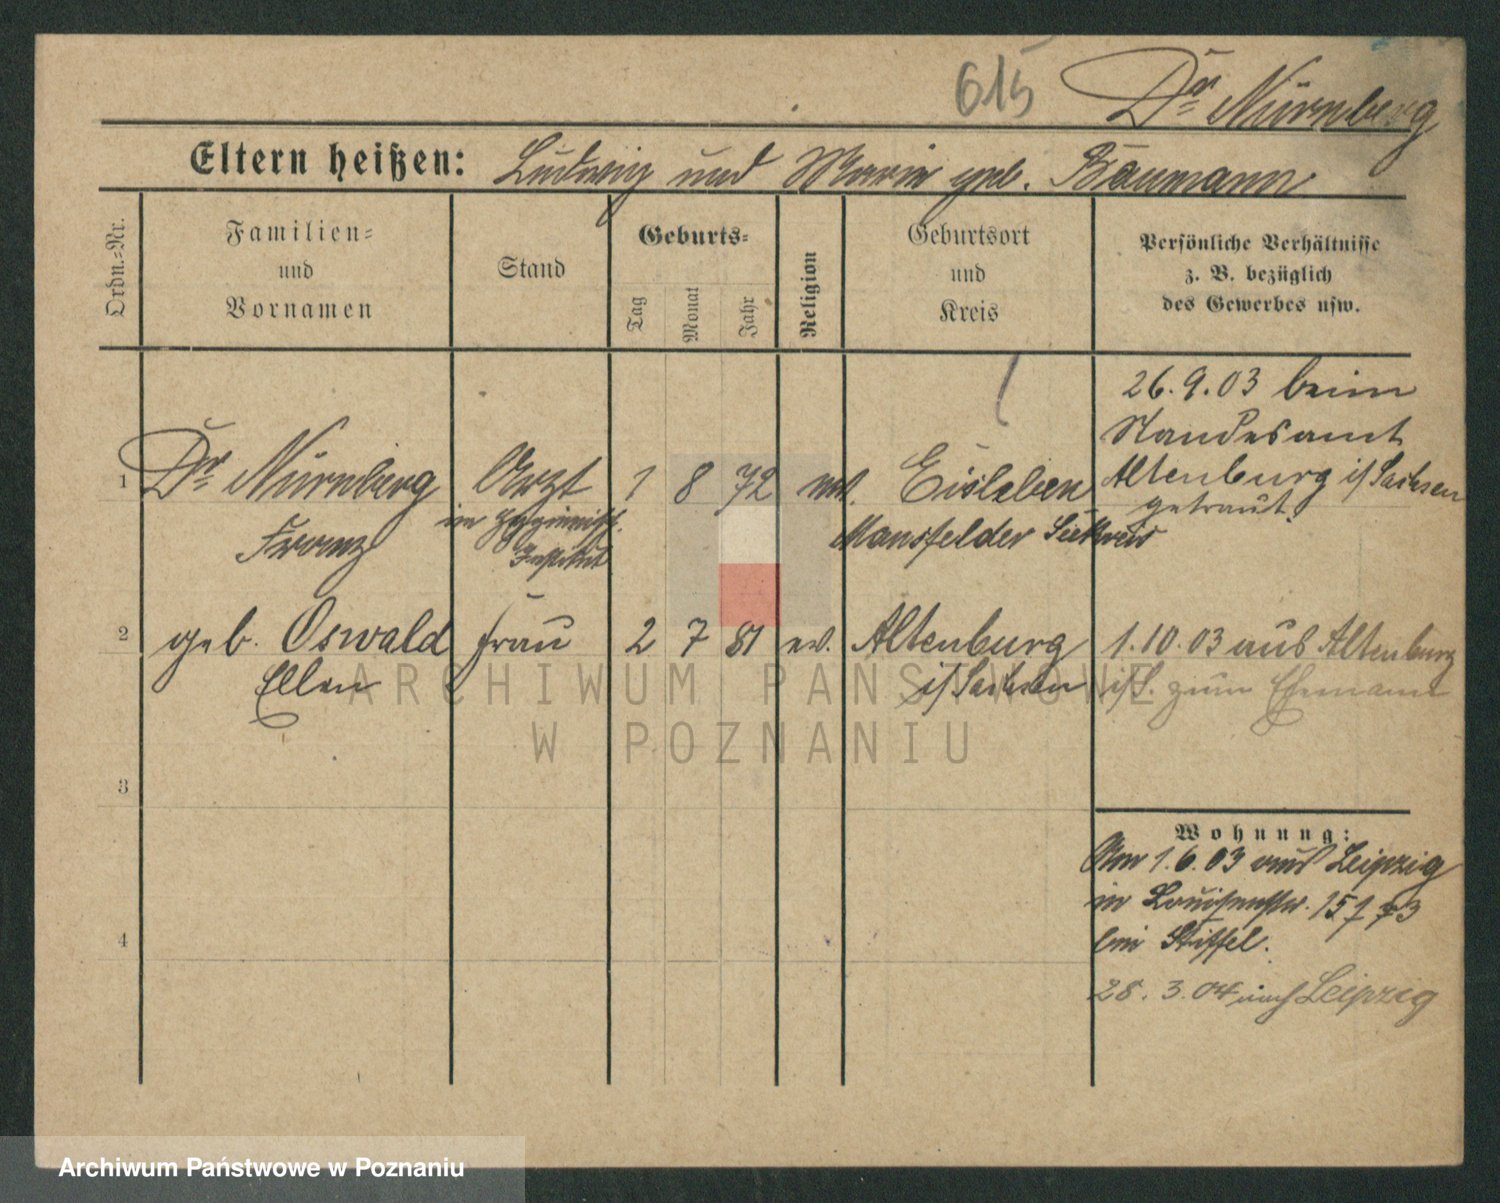 615 Dr Nürnberg
Eltern heißen: Ludwig und Marie geb. Baumann
Ordn.-Nr.
Familien-
und
Vornamen
Stand
Geburts-
Tag
Monat
Jahr
Religion
Geburtsort
und
Kreis
Persönliche Verhältnisse
z. B. bezüglich
des Gewerbes usw.
26.9.03 beim
Standesamt
Altenburg i/Sachsen
getraut.
1 Dr Nürnberg Arzt 1 8 72 ev. Eisleben
Franz im hygienisch. Mansfelder Seekreis
Institut
2 geb. Oswald Frau 2 7 81 ev. Altenburg 1.10.03 aus Altenburg
Ellen i/Sachsen i/S. zum Ehemann
3
Wohnung:
Am 1.6.03 aus Leipzig
in Louisenstr.
bei Stiffel.
4
28.3.04 nach Leipzig
ARCHIWUM PAŃSTWOWE
W POZNANIU
Archiwum Państwowe w Poznaniu